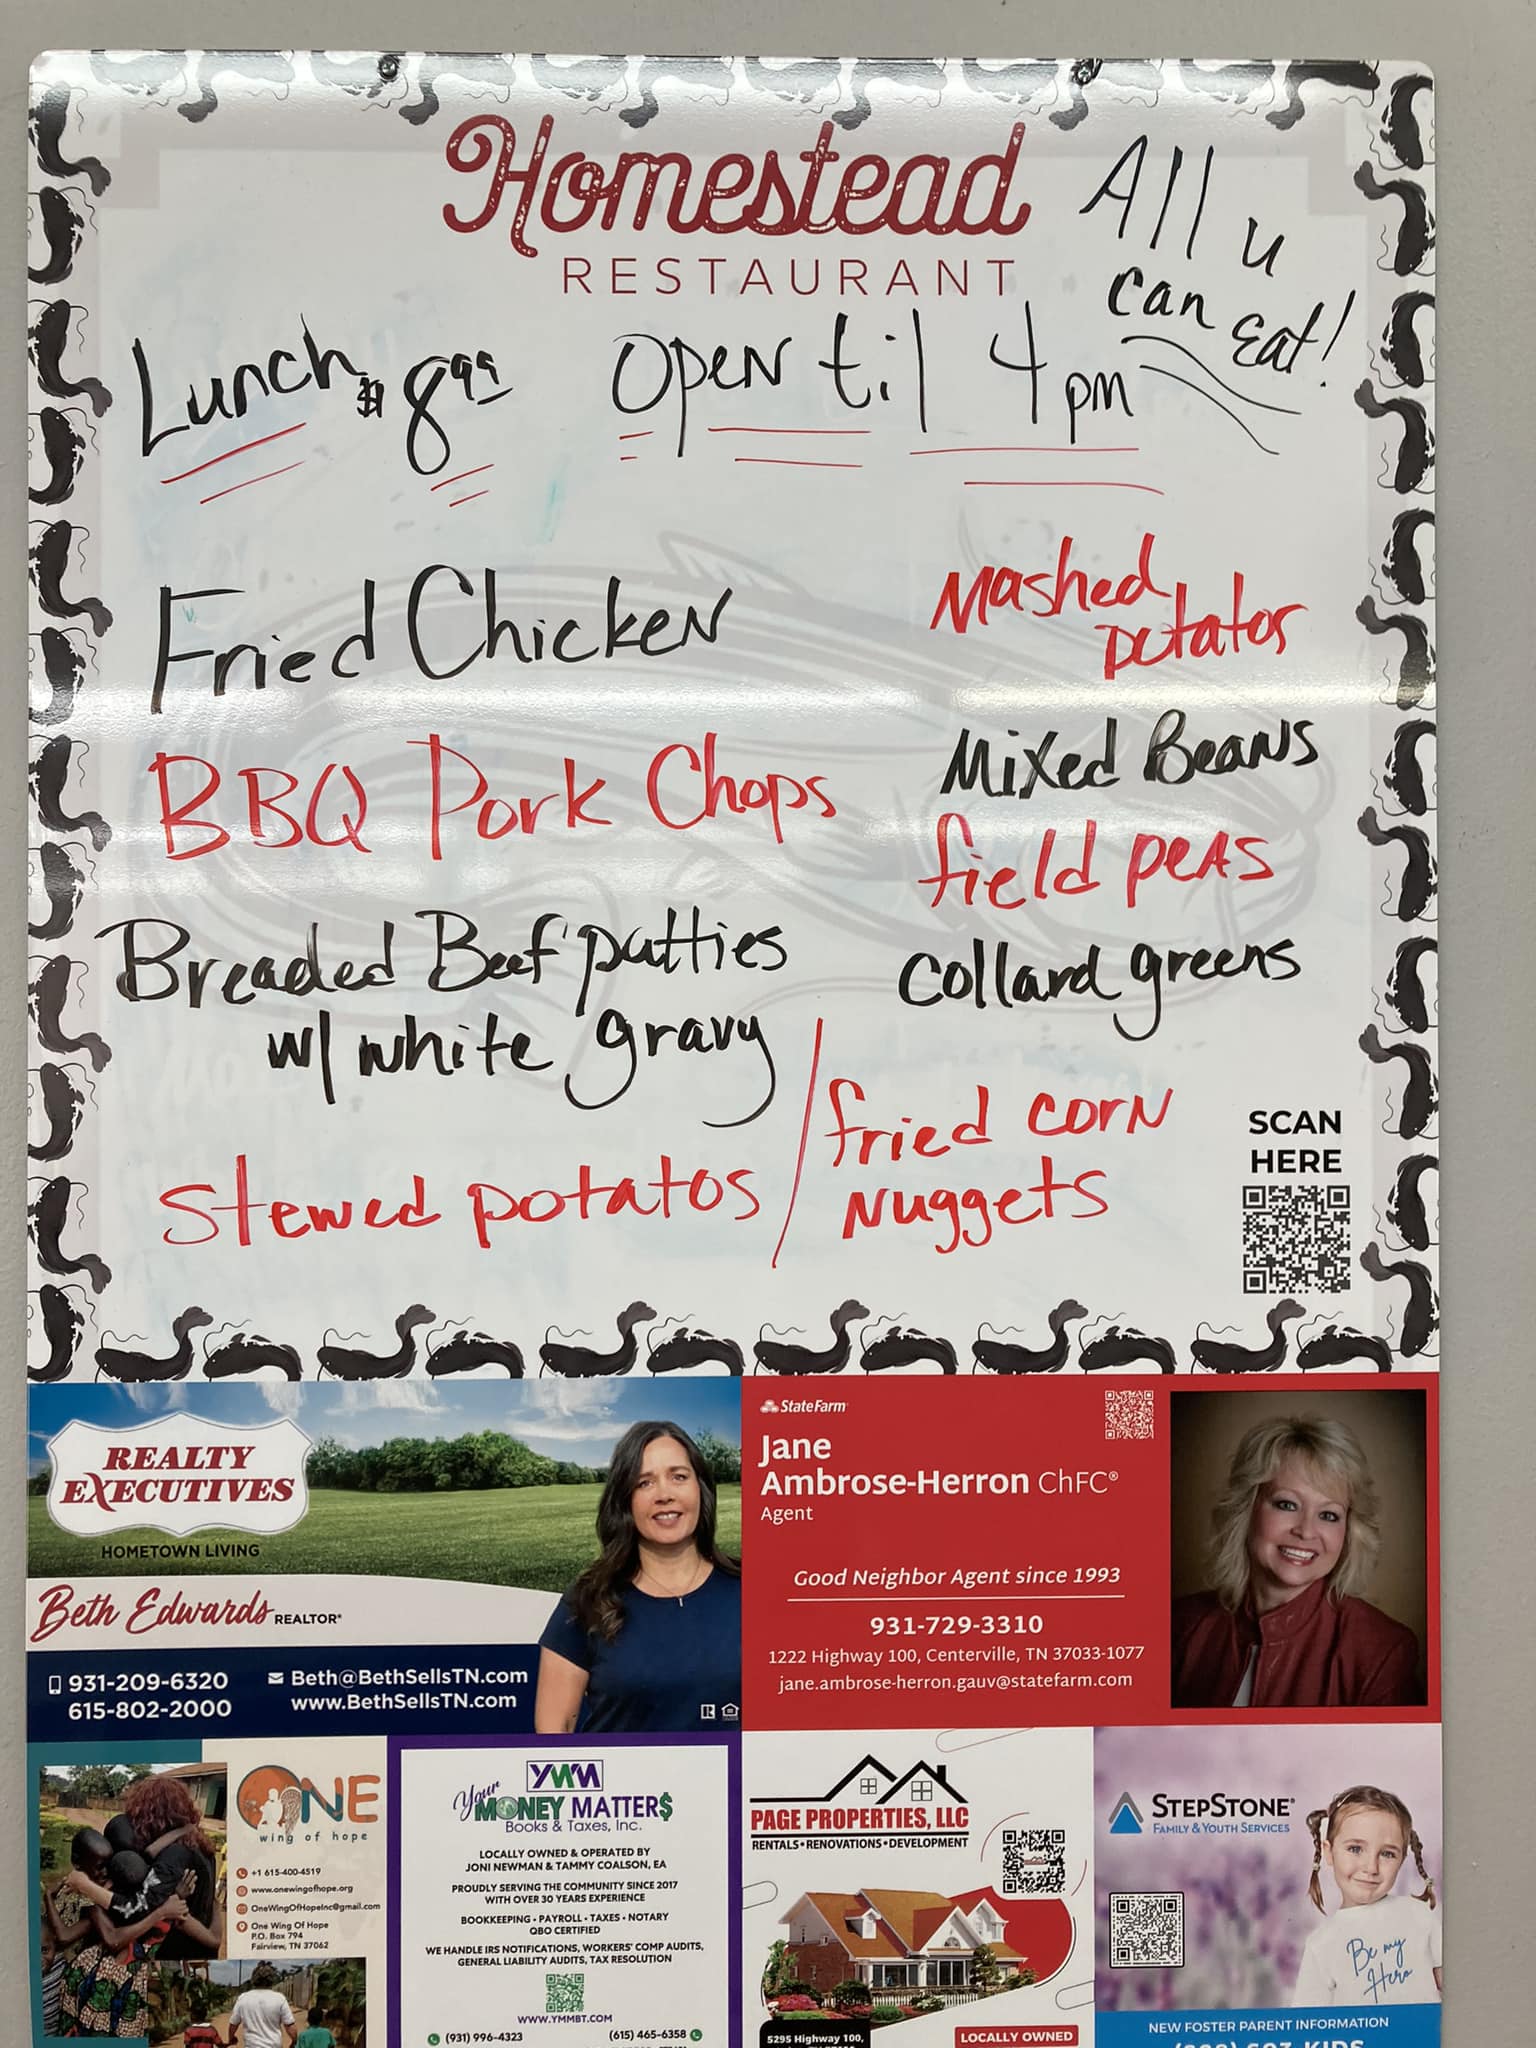 Homestead
RESTAURANT
All u
can Eat!
Lunch $8.99
Open til 4 pm
Fried Chicken
BBQ Pork Chops
Breaded Beef patties
w/ white gravy
Stewed potatos
Mashed
potatos
Mixed Beans
field peas
collard greens
fried corn
nuggets
SCAN
HERE
REALTY
EXECUTIVES
HOMETOWN LIVING
Beth Edwards REALTOR®
931-209-6320
615-802-2000
Beth@BethSellsTN.com
www.BethSellsTN.com
StateFarm
Jane
Ambrose-Herron ChFC®
Agent
Good Neighbor Agent since 1993
931-729-3310
1222 Highway 100, Centerville, TN 37033-1077
jane.ambrose-herron.gauv@statefarm.com
ONE
wing of hope
+1 615-400-4519
www.onewingofhope.org
OneWingOfHopeInc@gmail.com
One Wing Of Hope
P.O. Box 794
Fairview, TN 37062
YMM
Your
MONEY MATTER$
Books & Taxes, Inc.
LOCALLY OWNED & OPERATED BY
JONI NEWMAN & TAMMY COALSON, EA
PROUDLY SERVING THE COMMUNITY SINCE 2017
WITH OVER 30 YEARS EXPERIENCE
BOOKKEEPING • PAYROLL • TAXES • NOTARY
QBO CERTIFIED
WE HANDLE IRS NOTIFICATIONS, WORKERS' COMP AUDITS,
GENERAL LIABILITY AUDITS, TAX RESOLUTION
WWW.YMMBT.COM
(931) 996-4323
(615) 465-6358
PAGE PROPERTIES, LLC
RENTALS • RENOVATIONS • DEVELOPMENT
5295 Highway 100,
LOCALLY OWNED
STEPSTONE®
FAMILY & YOUTH SERVICES
Be my
Hero
NEW FOSTER PARENT INFORMATION